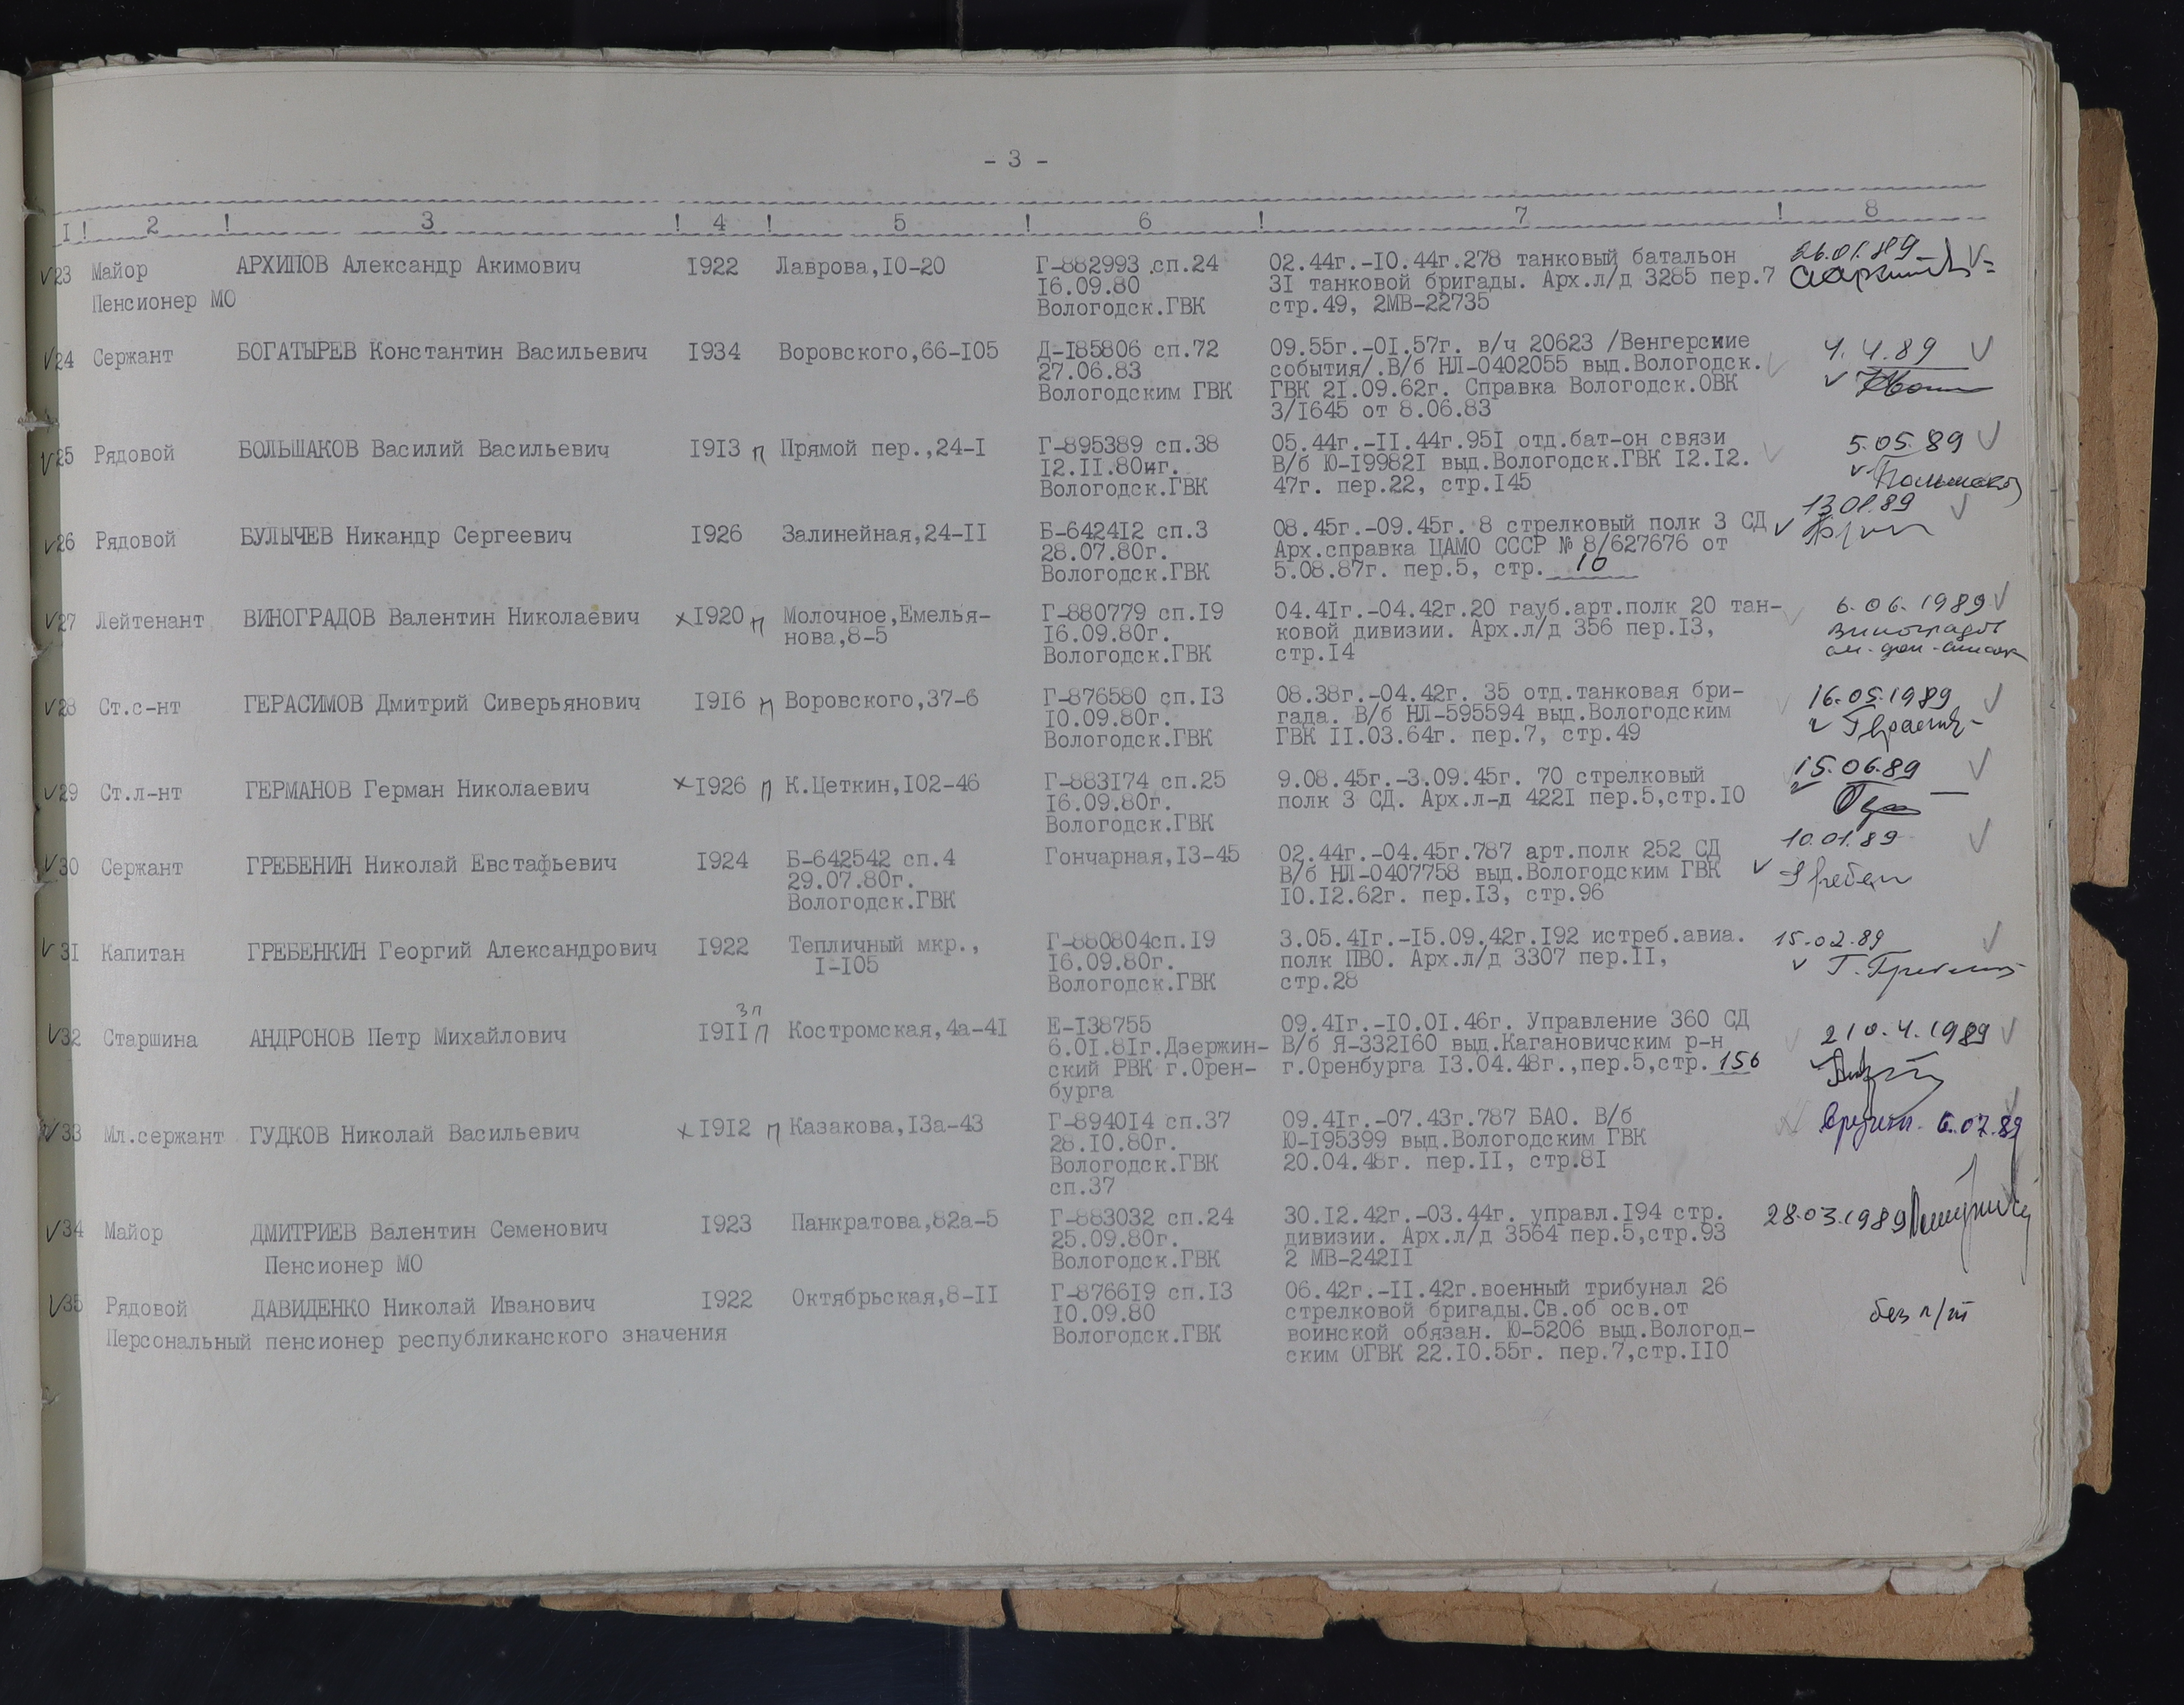 - 3 -
I ! 2 ! 3 ! 4 ! 5 ! 6 ! 7 ! 8
23 Майор АРХИПОВ Александр Акимович 1922 Лаврова,10-20 Г-882993 сп.24 02.44г.-10.44г.278 танковый батальон 26.01.89
Пенсионер МО 16.09.80 31 танковой бригады. Арх.л/д 3285 пер.7
Вологодск.ГВК стр.49, 2МВ-22735
24 Сержант БОГАТЫРЕВ Константин Васильевич 1934 Воровского,66-105 Д-185806 сп.72 09.55г.-01.57г. в/ч 20623 /Венгерские 4.4.89
27.06.83 события/.В/б НЛ-0402055 выд.Вологодск.
Вологодским ГВК ГВК 21.09.62г. Справка Вологодск.ОВК
3/1645 от 8.06.83
25 Рядовой БОЛЬШАКОВ Василий Васильевич 1913 п Прямой пер.,24-1 Г-895389 сп.38 05.44г.-11.44г.951 отд.бат-он связи 5.05.89
12.11.80иг. В/б Ю-199821 выд.Вологодск.ГВК 12.12.
Вологодск.ГВК 47г. пер.22, стр.145
26 Рядовой БУЛЫЧЕВ Никандр Сергеевич 1926 Залинейная,24-11 Б-642412 сп.3 08.45г.-09.45г. 8 стрелковый полк 3 СД 13.01.89
28.07.80г. Арх.справка ЦАМО СССР № 8/627676 от
Вологодск.ГВК 5.08.87г. пер.5, стр. 10
27 Лейтенант ВИНОГРАДОВ Валентин Николаевич х 1920 п Молочное,Емелья- Г-880779 сп.19 04.41г.-04.42г.20 гауб.арт.полк 20 тан- 6.06.1989
нова,8-5 16.09.80г. ковой дивизии. Арх.л/д 356 пер.13, Виноградов
Вологодск.ГВК стр.14
28 Ст.с-нт ГЕРАСИМОВ Дмитрий Сиверьянович 1916 п Воровского,37-6 Г-876580 сп.13 08.38г.-04.42г. 35 отд.танковая бри- 16.05.1989
10.09.80г. гада. В/б НЛ-595594 выд.Вологодским
Вологодск.ГВК ГВК 11.03.64г. пер.7, стр.49
29 Ст.л-нт ГЕРМАНОВ Герман Николаевич х 1926 п К.Цеткин,102-46 Г-883174 сп.25 9.08.45г.-3.09.45г. 70 стрелковый 15.06.89
16.09.80г. полк 3 СД. Арх.л-д 4221 пер.5,стр.10
Вологодск.ГВК
30 Сержант ГРЕБЕНИН Николай Евстафьевич 1924 Б-642542 сп.4 Гончарная,13-45 02.44г.-04.45г.787 арт.полк 252 СД 10.01.89
29.07.80г. В/б НЛ-0407758 выд.Вологодским ГВК
Вологодск.ГВК 10.12.62г. пер.13, стр.96
31 Капитан ГРЕБЕНКИН Георгий Александрович 1922 Тепличный мкр., Г-880804сп.19 3.05.41г.-15.09.42г.192 истреб.авиа. 15.02.89
1-105 16.09.80г. полк ПВО. Арх.л/д 3307 пер.11,
Вологодск.ГВК стр.28
3п
32 Старшина АНДРОНОВ Петр Михайлович 1911 п Костромская,4а-41 Е-138755 09.41г.-10.01.46г. Управление 360 СД
6.01.81г.Дзержин- В/б Я-332160 выд.Кагановичским р-н
ский РВК г.Орен- г.Оренбурга 13.04.48г.,пер.5,стр. 156
бурга
33 Мл.сержант ГУДКОВ Николай Васильевич х 1912 п Казакова,13а-43 Г-894014 сп.37 09.41г.-07.43г.787 БАО. В/б 6.07.89
28.10.80г. Ю-195399 выд.Вологодским ГВК
Вологодск.ГВК 20.04.48г. пер.11, стр.81
сп.37
34 Майор ДМИТРИЕВ Валентин Семенович 1923 Панкратова,82а-5 Г-883032 сп.24 30.12.42г.-03.44г. управл.194 стр. 28.03.1989
25.09.80г. дивизии. Арх.л/д 3564 пер.5,стр.93
Пенсионер МО Вологодск.ГВК 2 МВ-24211
35 Рядовой ДАВИДЕНКО Николай Иванович 1922 Октябрьская,8-11 Г-876619 сп.13 06.42г.-11.42г.военный трибунал 26 без п/т
10.09.80 стрелковой бригады.Св.об осв.от
Персональный пенсионер республиканского значения Вологодск.ГВК воинской обязан. Ю-5206 выд.Вологод-
ским ОГВК 22.10.55г. пер.7,стр.110